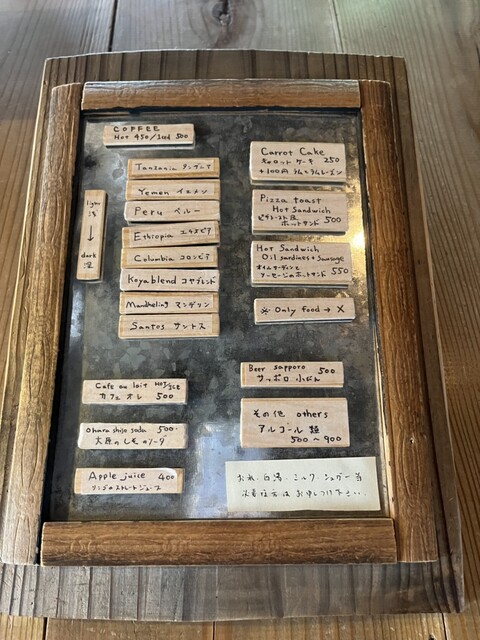 COFFEE
Hot 450/Iced 500
light
浅
↓
dark
深
Tanzania タンザニア
Yemen イエメン
Peru ペルー
Ethiopia エチオピア
Colombia コロンビア
Koyablend コヤブレンド
Mandheling マンデリン
Santos サントス
Cafe au lait HOT/ICE
カフェオレ 500
Ohara shiso soda 500
大原のしそソーダ
Apple juice 400
リンゴのストレートジュース
Carrot Cake
キャロットケーキ 250
+100円 ラムレーズン
Pizza toast
Hot Sandwich
ピザトースト
ホットサンド 500
Hot Sandwich
Oil sardines + Sausage
オイルサーディンと
ソーセージのホットサンド 550
※ Only food → ×
Beer sapporo 500
サッポロ 小びん
その他 others
アルコール類
500〜900
お水、白湯、ミルク、シュガー
必要な方はお申しつけ下さい